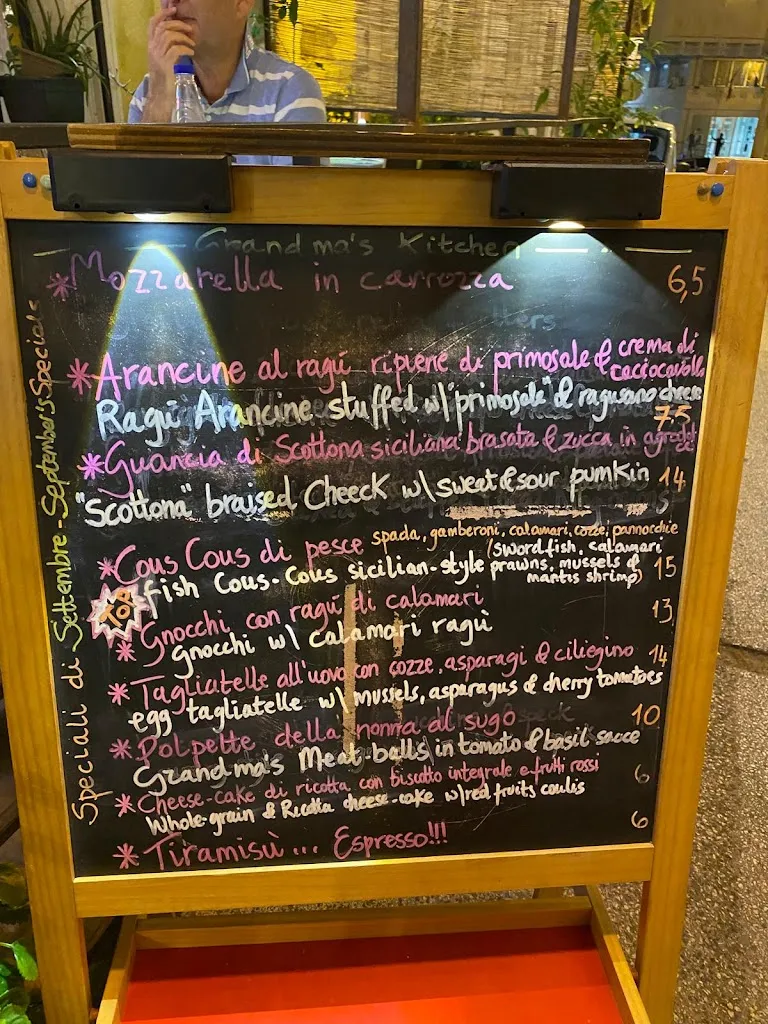 Grandma's Kitchen
*Mozzarella in carrozza 6,5
*Arancine al ragú ripiene di primosale & crema di caciocavallo
Ragú Arancine stuffed w/"primosale" & ragusano cheese
7,5
*Guancia di Scottona siciliana brasata & zucca in agrodolce
"Scottona" braised Cheeck w\ sweet & sour pumkin 14
*Cous Cous di pesce spada, gamberoni, calamari, cozze, pannocchie
fish Cous-Cous sicilian-style (swordfish, calamari prawns, mussels & mantis shrimp) 15
TOP
*Gnocchi con ragú di calamari
gnocchi w\ calamari ragù 13
*Tagliatelle all'uovo con cozze, asparagi & ciliegino 14
egg tagliatelle w\ mussels, asparagus & cherry tomatoes
*Polpette della nonna al sugo 10
Grandma's Meat-balls in tomato & basil sauce
*Cheese-cake di ricotta con biscotto integrale e frutti rossi 6
Whole-grain & Ricotta cheese-cake w/red fruits coulis
*Tiramisù... Espresso!!! 6
Speciali di Settembre - September's Specials